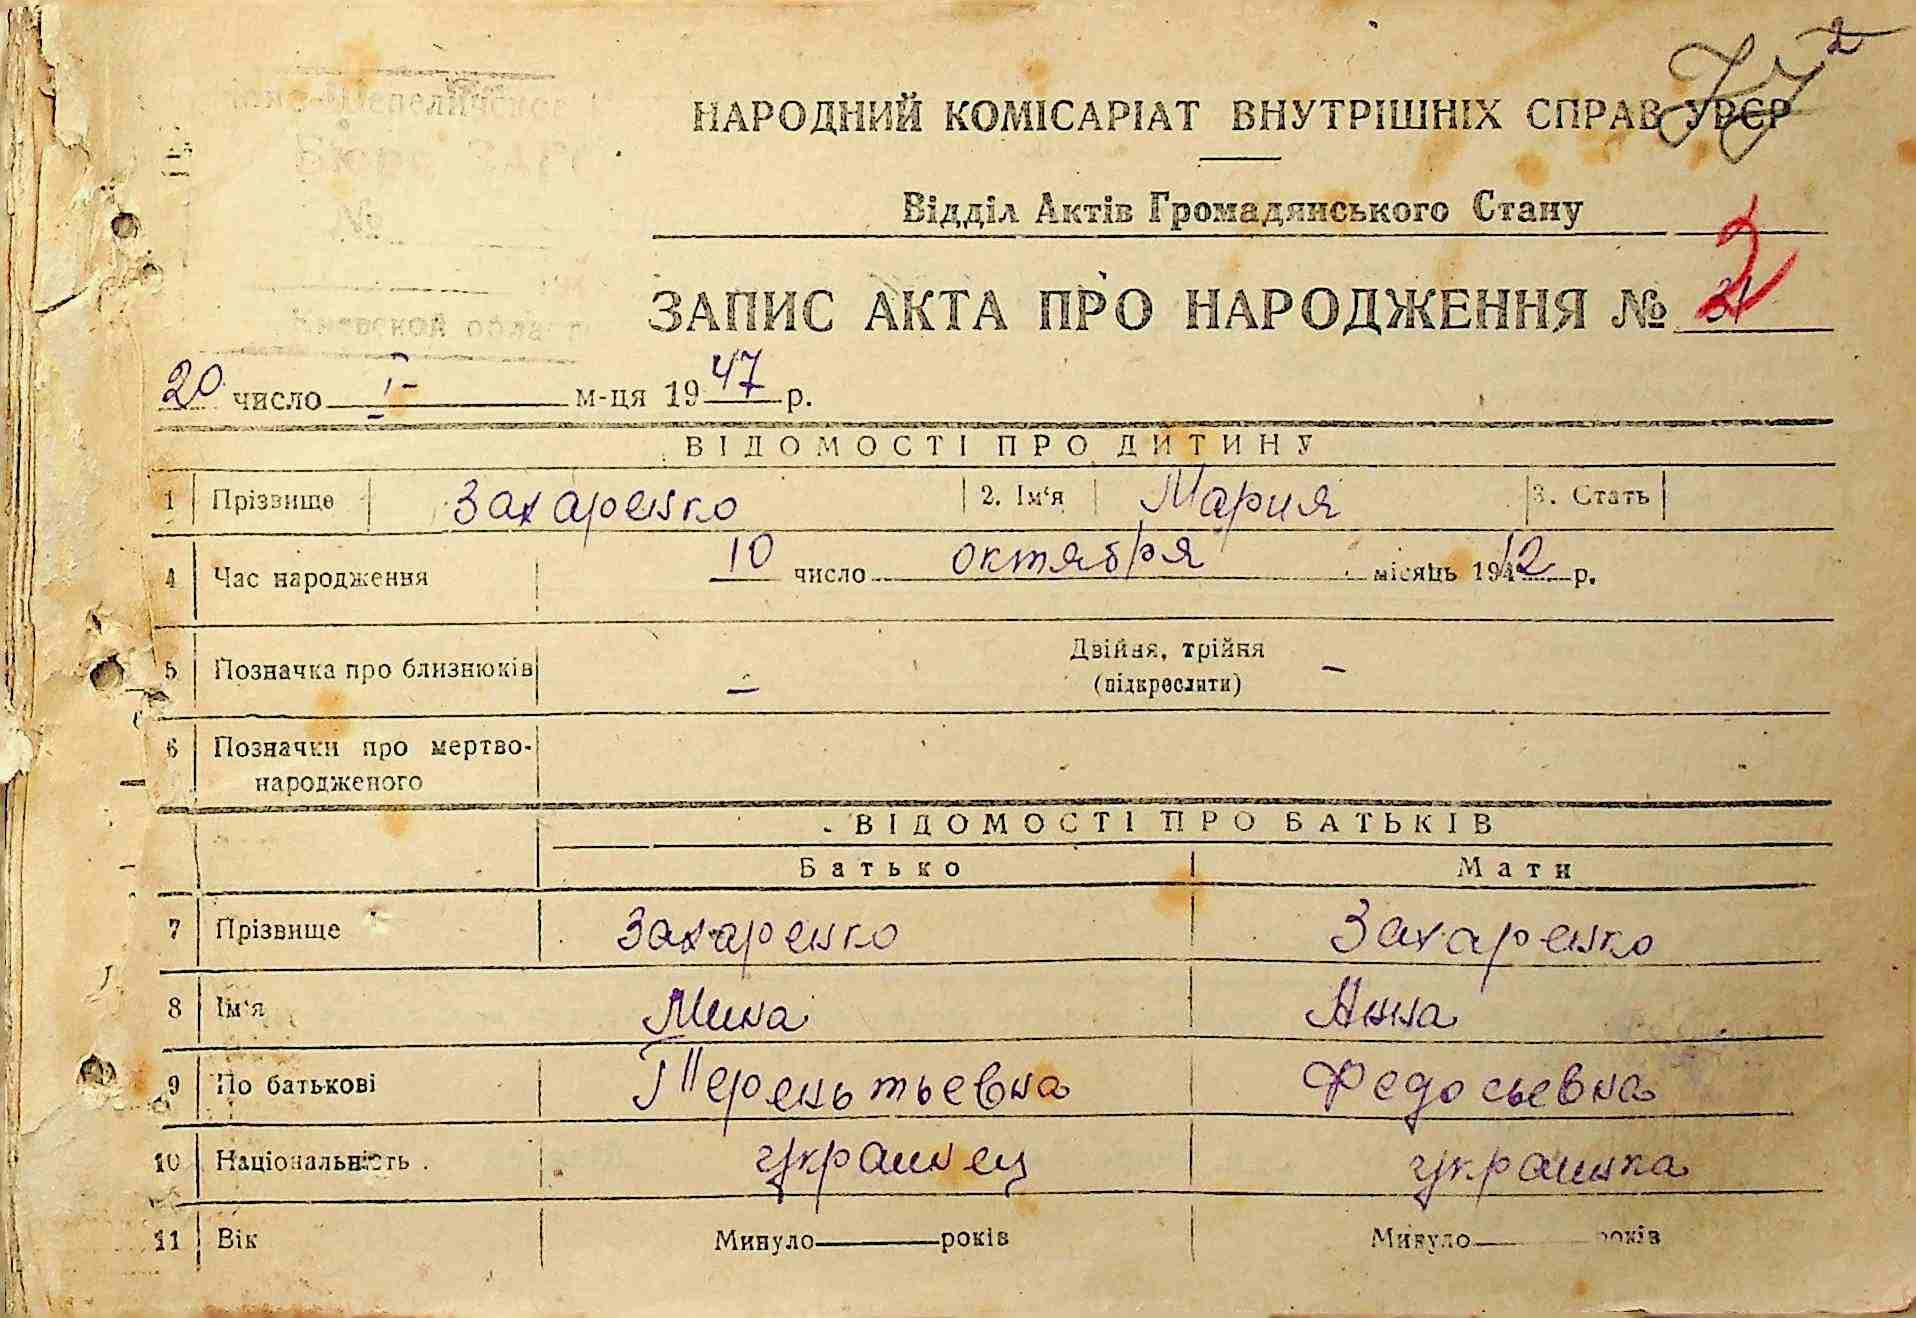 НАРОДНИЙ КОМІСАРІАТ ВНУТРІШНІХ СПРАВ УРСР
Відділ Актів Громадянського Стану
ЗАПИС АКТА ПРО НАРОДЖЕННЯ № 2
20 число I м-ця 1947 р.
ВІДОМОСТІ ПРО ДИТИНУ
1 Прізвище Захаренко 2. Ім'я Мария 3. Стать
4 Час народження 10 число октября місяць 1942 р.
5 Позначка про близнюків — Двійня, трійня —
(підкреслити)
6 Позначки про мертво-
народженого
ВІДОМОСТІ ПРО БАТЬКІВ
Батько Мати
7 Прізвище Захаренко Захаренко
8 Ім'я Мина Анна
9 По батькові Терентьевна Федосьевна
10 Національність украинец украинка
11 Вік Минуло років Минуло років